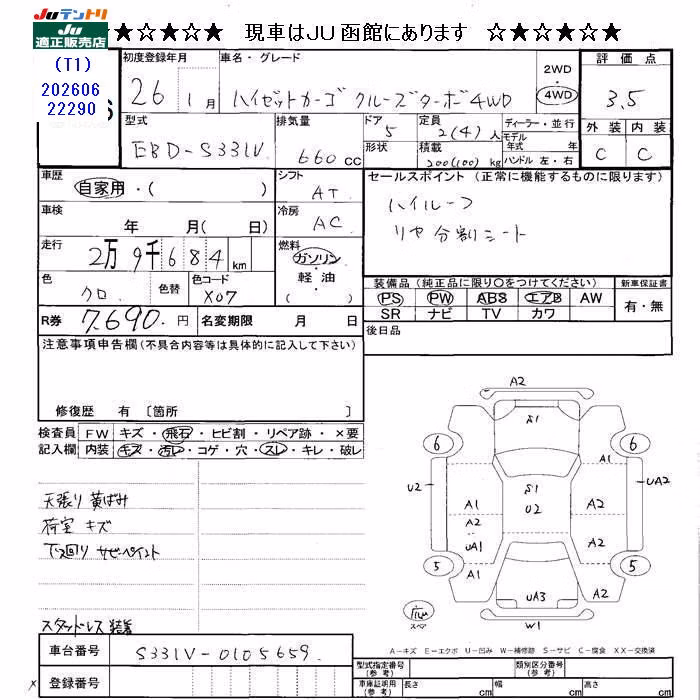 Juテントリ
JU適正販売店
★☆★☆★ 現車はJU函館にあります ☆★☆★☆★
(T1)
202606
22290
初度登録年月 車名・グレード 2WD・4WD 評価点
26年 1月 ハイゼットカーゴ クルーズターボ4WD 3.5
型式 排気量 ドア 定員 ディーラー・並行 外装 内装
EBD-S331V 660cc 5 2(4)人 モデル年式 年式 C C
形状 積載 200(100)kg ハンドル 左・右
車歴 シフト セールスポイント(正常に機能するものに限ります)
自家用・( ) AT ハイルーフ
車検 年 月( 日) 冷房 AC リヤ分割シート
走行 燃料
2万9千684km ガソリン・軽油・( )
色 色替 色コード 装備品(純正品に限り○をつけてください) 新車保証書
クロ X07 PS PW ABS エアB AW 有・無
SR ナビ TV カワ
R券 7,690円 名変期限 月 日 後日品
注意事項申告欄(不具合内容等は具体的に記入して下さい)
修復歴 有〔箇所 〕
検査員記入欄 FW キズ・飛石・ヒビ割・リペア跡・×要
内装 キズ・汚レ・コゲ・穴・スレ・キレ・破レ
天張り 黄ばみ
荷室 キズ
下回り サビペイント
スタッドレス装着
A2
S1
6 6
U2 S1 UA2
A1 U2 A2
A2
UA1 A2
5 5
A1 UA3 A2
スペア
W1
A-キズ E-エクボ U-凹み W-補修跡 S-サビ C-腐食 XX-交換済
車台番号 S331V-0105659
登録番号
型式指定番号(参考) 類別区分番号(参考)
車庫証明用(参考) 長さ cm 幅 cm 高さ cm